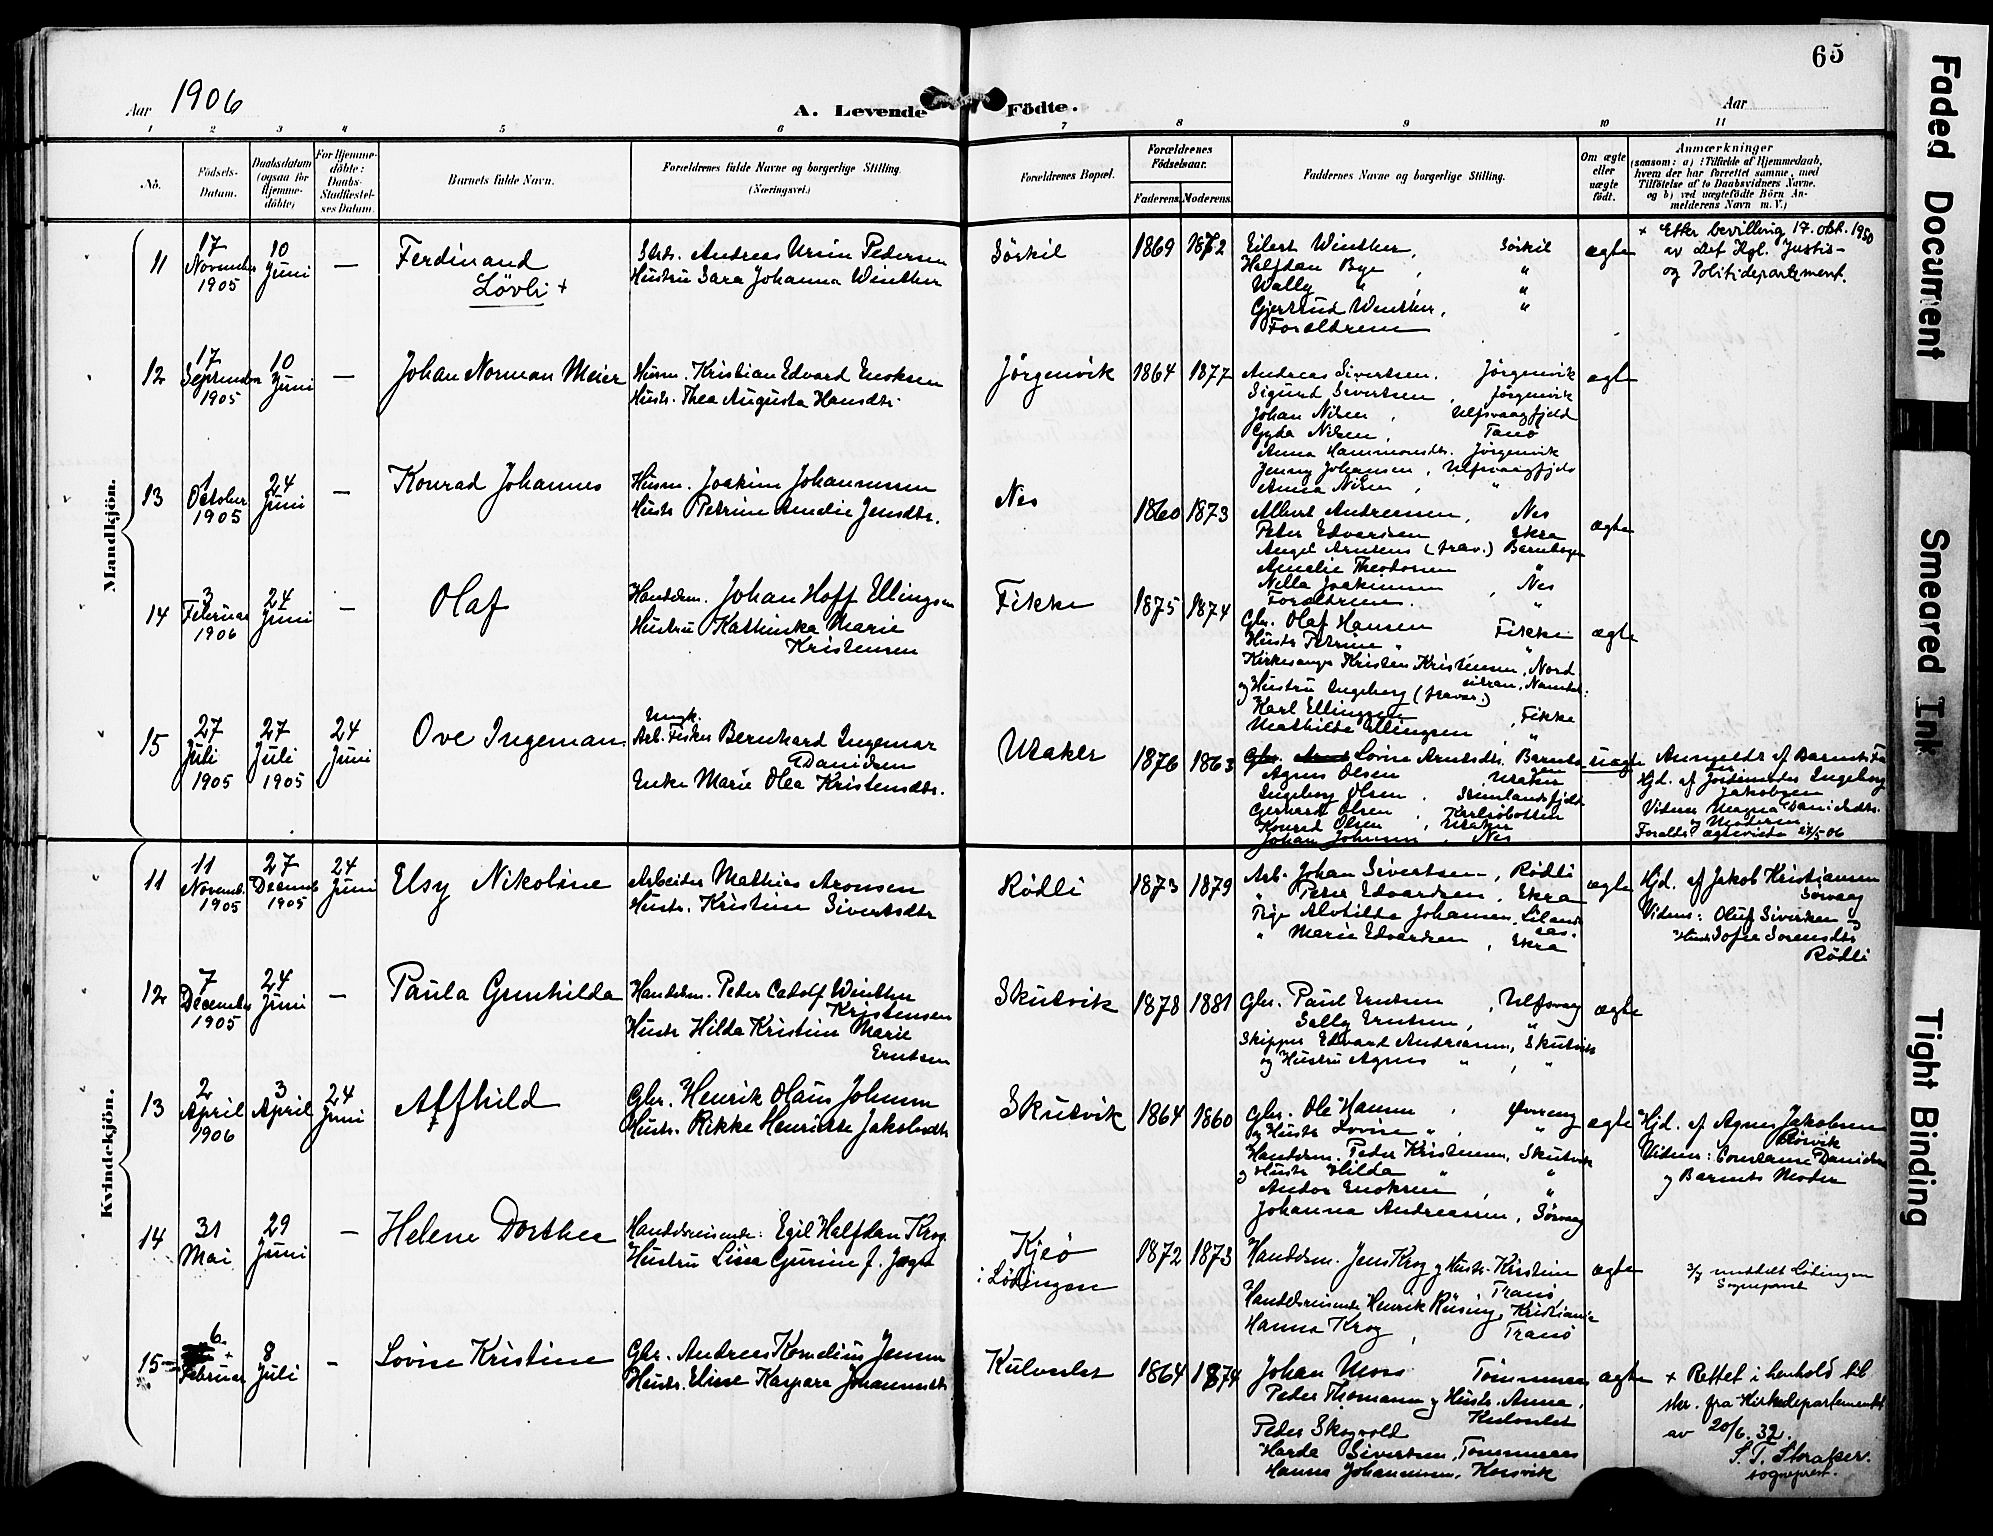 65
Aar 1906
A. Levende Födte.
Aar
1 2 3 4 5 6 7 8 9 10 11
No.
Födsels-Datum.
Daabsdatum (ogsaa for Hjemme-döbte)
For Hjemme-döbte: Daabs-Stadfæstel-ses Datum.
Barnets fulde Navn.
Forældrenes fulde Navne og borgerlige Stilling. (Næringsvei.)
Forældrenes Bopæl.
Forældrenes Födselsaar.
Faderens Moderens
Faddernes Navne og borgerlige Stilling.
Om ægte eller uægte födt.
Anmærkninger
(saasom: a) i Tilfælde af Hjemmedaab, hvem der har forrettet samme, med Tilföielse af to Daabsvidners Navne, og b) ved uægtefödte Börn An-melderens Navn m. V.)
Mandkjön.
11
17 November 1905
10 Juni
—
Ferdinand
Lövli +
Andreas Ursin Pedersen
Hustru Sara Johanna Winther
Sörkil
1869 1872
Eilert Winther, Sörkil
Halfdan Bye, "
Wally ", "
Gjertrud Winther, "
Forældrene
ægte
+ Efter bevilling 17. okt. 1950
av det Kgl. Justis-
og Politidepartement.
12
17 September 1905
10 Juni
—
Johan Norman Meier
Husm. Kristian Edvard Enoksen
Hustr. Thea Augusta Hansdtr.
Jörgenvik
1864 1877
Andreas Sivertsen, Jörgenvik
Sigurd Sivertsen, Jörgenvik
Johan Nilsen, Ulfsvaagfjeld
Gyda Nilsen, Tanö
Anna Hammondtr. Jörgenvik
Jenny Johansen, Ulfsvaagfjeld
Anna Nilsen, "
ægte
13
1 October 1905
24 Juni
—
Konrad Johannes
Husm. Joakim Johannessen
Hustr. Petrine Amelie Jensdtr.
Nes
1860 1873
Albert Andreassen, Nes
Peter Edvardsen Ekra
Angel Arntsens (frav.)
Amelie Theodorsen "
Nella Joakimsen, Nes
Forældrene. "
ægte
14
3 Februar 1906
24 Juni
—
Olaf
Handelsm. Johan Hoff Ellingsen
Hustru Kathinka Marie
Kristensen
Fikke
1875 1874
Gbr. Olaf Hansen Fikke
Hustr. Petrine " "
Kirkesanger Kristen Kristensen, Nord
og Hustru Ingeborg (fravær.)
Karl Ellingsen, Fikke
Mathilde Ellingsen "
ægte
15
27 Juli 1905
27 Juli 1905
24 Juni
Ove Ingeman
Ungk.
Arb. Fisker Bernhard Ingemar
Danielsen
Enke Marie Olea Kristensdtr.
Uraker
1876 1863
Lovise Arntsdtr.
Agnes Olsen Uraker
Ingeborg Olsen,
Gerhard Olsen, Karlsöbotten
Konrad Olsen, Uraker
Johan Johnsen, Nes
uægte
Anmeldt af Barnets Fader
Hjd. af Jordemoder Ingeborg
Jakobsen
Vidner Magna Danielsdtr.
og Moderen.
Foreldr. ægteviede 24/5 06
Kvindekjön.
11
11 Novemb. 1905
27 Decemb 1905
24 Juni
Elsy Nikoline
Arbeider Mathias Aronsen
Hustr. Kristine Sivertsdtr
Rödli
1873 1879
Arb. Johan Sivertsen, Rödli
" Peter Edvardsen, Ekra
Pige Alvilde Johansen, Liland
" Marie Edvardsen, Ekra
ægte
Hjd. af Jakob Kristiansen
Sörvaag
Vidner: Oluf Sivertsen og
Hustr Sofie Sorensdtr
Rödli
12
7 December 1905
24 Juni
—
Paula Gunhilda
Handelsm. Peder Cadolf Winther
Kristensen
Hustr Hilda Kristine Marie
Erntsen
Skutvik
1878 1881
Gbr. Paul Erntsen, Ulfsvaag
Sally Erntsen, "
Skipper Edvard Andreasen, Skutvik
og Hustru Agnes ", "
ægte
13
2 April 1906
3 April
24 Juni
Alfhild
Gbr. Henrik Olaus Johnsen
Hustr. Rikke Henriette Jakobsdtr
Skutvik
1864 1860
Gbr. Ole Hansen,
og Hustr Lovise ", "
Handelsm. Peder Kristensen, Skutvik
og Hustr Hilda " "
Andor Enoksen, "
Johanna Andreassen, Sörvaag
ægte
Hjd. af Agnes Jakobsen
Rörvik
Vidner: Constanse Danielsen
og Barnets Moder
14
31 Mai
29 Juni
—
Helene Dorthea
Handelsreisende: Egil Halfdan Krog
Hustru Lisa Gurine f. Jæger
Kjeö
i Lödingen
1872 1873
Handelsm. Jens Krog og Hustr. Kristine
Tranö
Handelsreisende Henrik Rüsing, Kristiania
Hanna Krog, Tranö
ægte
3/7 meddelt Lödingen
Sogneprest
15
6. + Februar
8 Juli
—
Lovise Kristine
Gbr. Andreas Kornelius Jensen
Hustr. Elise Kaspara Johannesdtr
Kulvedet
1864 1874
Johan Moss Tömmeraas
Peder Thomassen og Hustr. Anna,
Kulvedet
Peder Skogvold
Harda Sivertsen, Tommeraas
Hanna Johannessen, Korsvik
ægte
+ Rettet i henhold til
skr. fra Kirkedepartementet
av 20/6. 32.
S. T. Storaker.
sogneprest.
Faded Document
Smeared Ink
Tight Binding